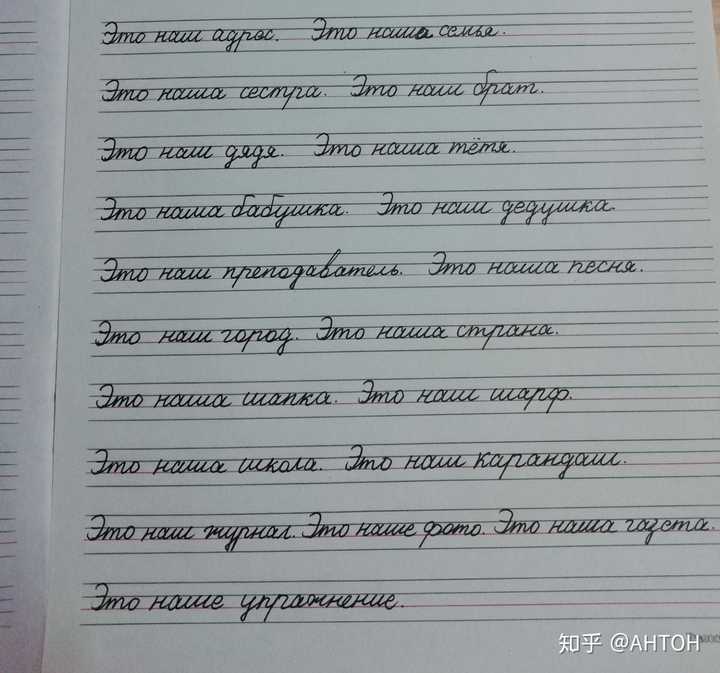 Это наш адрес. Это наша семья.
Это наша сестра. Это наш брат.
Это наш дядя. Это наша тётя.
Это наша бабушка. Это наш дедушка.
Это наш преподаватель. Это наша песня.
Это наш город. Это наша страна.
Это наша шапка. Это наш шарф.
Это наша школа. Это наш карандаш.
Это наш журнал. Это наше фото. Это наша газета.
Это наше упражнение.
知乎 @AHTOH